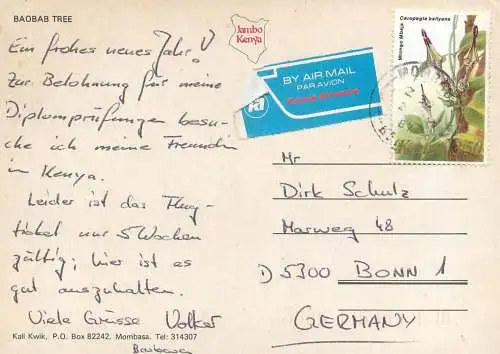 BAOBAB TREE
Jambo
Kenya
Ein frohes neues Jahr!
Zur Belohnung für meine
Diplomprüfungen besu-
che ich meine Freundin
in Kenya.
Leider ist das Flug-
ticket nur 5 Wochen
gültig; hier ist es
gut auszuhalten.
Viele Grüsse Volker
Kall Kwik, P.O. Box 82242. Mombasa. Tel: 314307
BY AIR MAIL
PAR AVION
Kenya Airways
Ceropegia ballyana
Mtonga Mbaja
Mr
Dirk Schulz
Marweg 48
D 5300 BONN 1
GERMANY